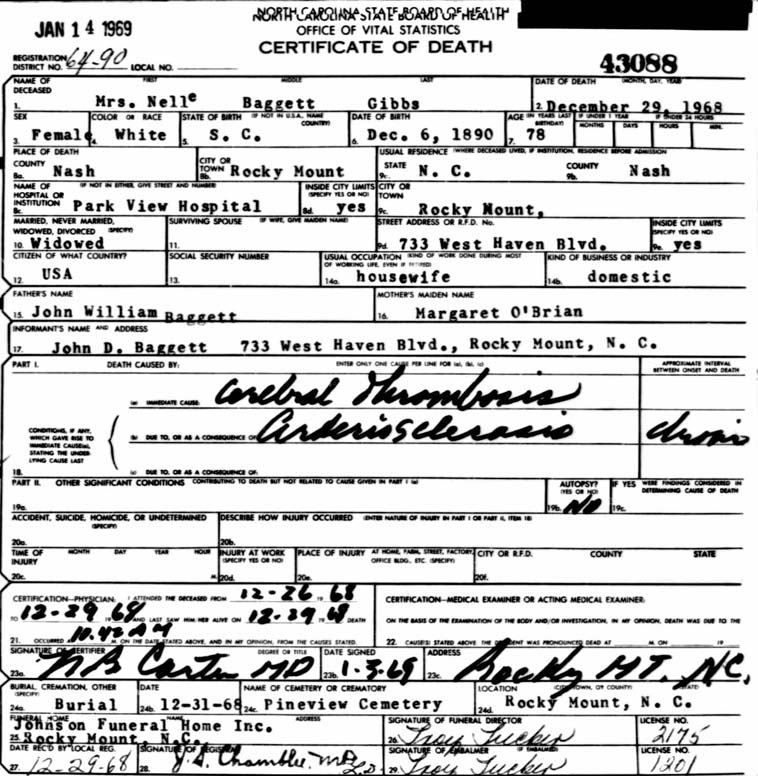 NORTH CAROLINA STATE BOARD OF HEALTH
OFFICE OF VITAL STATISTICS
JAN 14 1969
CERTIFICATE OF DEATH
REGISTRATION DISTRICT NO. 64-90 LOCAL NO. 43088
NAME OF DECEASED FIRST MIDDLE LAST DATE OF DEATH (MONTH, DAY, YEAR)
1. Mrs. Nelle Baggett Gibbs 2. December 29, 1968
SEX COLOR OR RACE STATE OF BIRTH (IF NOT IN U.S.A., NAME COUNTRY) DATE OF BIRTH AGE (IN YEARS LAST BIRTHDAY) IF UNDER 1 YEAR IF UNDER 24 HOURS
MONTHS DAYS HOURS MIN.
3. Female 4. White 5. S. C. 6. Dec. 6, 1890 7. 78
PLACE OF DEATH USUAL RESIDENCE (WHERE DECEASED LIVED, IF INSTITUTION, RESIDENCE BEFORE ADMISSION)
COUNTY CITY OR TOWN STATE COUNTY
8a. Nash 8b. Rocky Mount 9c. N. C. 9b. Nash
NAME OF HOSPITAL OR INSTITUTION (IF NOT IN EITHER, GIVE STREET AND NUMBER) INSIDE CITY LIMITS (SPECIFY YES OR NO) CITY OR TOWN
8c. Park View Hospital 8d. yes 9c. Rocky Mount,
MARRIED, NEVER MARRIED, WIDOWED, DIVORCED (SPECIFY) SURVIVING SPOUSE (IF WIFE, GIVE MAIDEN NAME) STREET ADDRESS OR R.F.D. No. INSIDE CITY LIMITS (SPECIFY YES OR NO)
10. Widowed 11. 9d. 733 West Haven Blvd. 9e. yes
CITIZEN OF WHAT COUNTRY? SOCIAL SECURITY NUMBER USUAL OCCUPATION (KIND OF WORK DONE DURING MOST OF WORKING LIFE, EVEN IF RETIRED) KIND OF BUSINESS OR INDUSTRY
12. USA 13. 14a. housewife 14b. domestic
FATHER'S NAME MOTHER'S MAIDEN NAME
15. John William Baggett 16. Margaret O'Brian
INFORMANT'S NAME AND ADDRESS
17. John D. Baggett 733 West Haven Blvd., Rocky Mount, N. C.
PART I. DEATH CAUSED BY: ENTER ONLY ONE CAUSE PER LINE FOR (a), (b), (c) APPROXIMATE INTERVAL BETWEEN ONSET AND DEATH
(a) IMMEDIATE CAUSE: Cerebral Thrombosis
CONDITIONS, IF ANY, WHICH GAVE RISE TO IMMEDIATE CAUSE(A), STATING THE UNDERLYING CAUSE LAST
(b) DUE TO, OR AS A CONSEQUENCE OF: Arderiosclerosis
18. (c) DUE TO, OR AS A CONSEQUENCE OF:
PART II. OTHER SIGNIFICANT CONDITIONS CONTRIBUTING TO DEATH BUT NOT RELATED TO CAUSE GIVEN IN PART I (a) AUTOPSY? (YES OR NO) IF YES WERE FINDINGS CONSIDERED IN DETERMINING CAUSE OF DEATH
19a. 19b. No 19c.
ACCIDENT, SUICIDE, HOMICIDE, OR UNDETERMINED (SPECIFY) DESCRIBE HOW INJURY OCCURRED (ENTER NATURE OF INJURY IN PART I OR PART II, ITEM 18)
20a. 20b.
TIME OF INJURY MONTH DAY YEAR HOUR INJURY AT WORK (SPECIFY YES OR NO) PLACE OF INJURY AT HOME, FARM, STREET, FACTORY, OFFICE BLDG., ETC. (SPECIFY) CITY OR R.F.D. COUNTY STATE
20c. M. 20d. 20e. 20f.
CERTIFICATION—PHYSICIAN: I ATTENDED THE DECEASED FROM 12-26 19 68 CERTIFICATION—MEDICAL EXAMINER OR ACTING MEDICAL EXAMINER:
TO 12-29 19 68 AND LAST SAW HIM/HER ALIVE ON 12-29 19 68 DEATH ON THE BASIS OF THE EXAMINATION OF THE BODY AND/OR INVESTIGATION, IN MY OPINION, DEATH WAS DUE TO THE
21. OCCURRED AT 10.42 AM M. ON THE DATE STATED ABOVE, AND IN MY OPINION, FROM THE CAUSES STATED. 22. CAUSE(S) STATED ABOVE THE DECEDENT WAS PRONOUNCED DEAD AT M. ON 19
SIGNATURE OF CERTIFIER DEGREE OR TITLE DATE SIGNED ADDRESS
23a. Carter MD 23b. 1-3-69 23c. Rocky MT. N.C.
BURIAL, CREMATION, OTHER (SPECIFY) DATE NAME OF CEMETERY OR CREMATORY LOCATION (CITY, TOWN, OR COUNTY) (STATE)
24a. Burial 24b. 12-31-68 24c. Pineview Cemetery 24d. Rocky Mount, N. C.
FUNERAL HOME NAME ADDRESS SIGNATURE OF FUNERAL DIRECTOR LICENSE NO.
Johnson Funeral Home Inc.
25. Rocky Mount, N.C. 26. Troy Tucker 2175
DATE REC'D BY LOCAL REG. SIGNATURE OF REGISTRAR SIGNATURE OF EMBALMER (IF EMBALMED) LICENSE NO.
27. 12-29-68 28. J. S. Chamblee. 29. Troy Tucker 1201